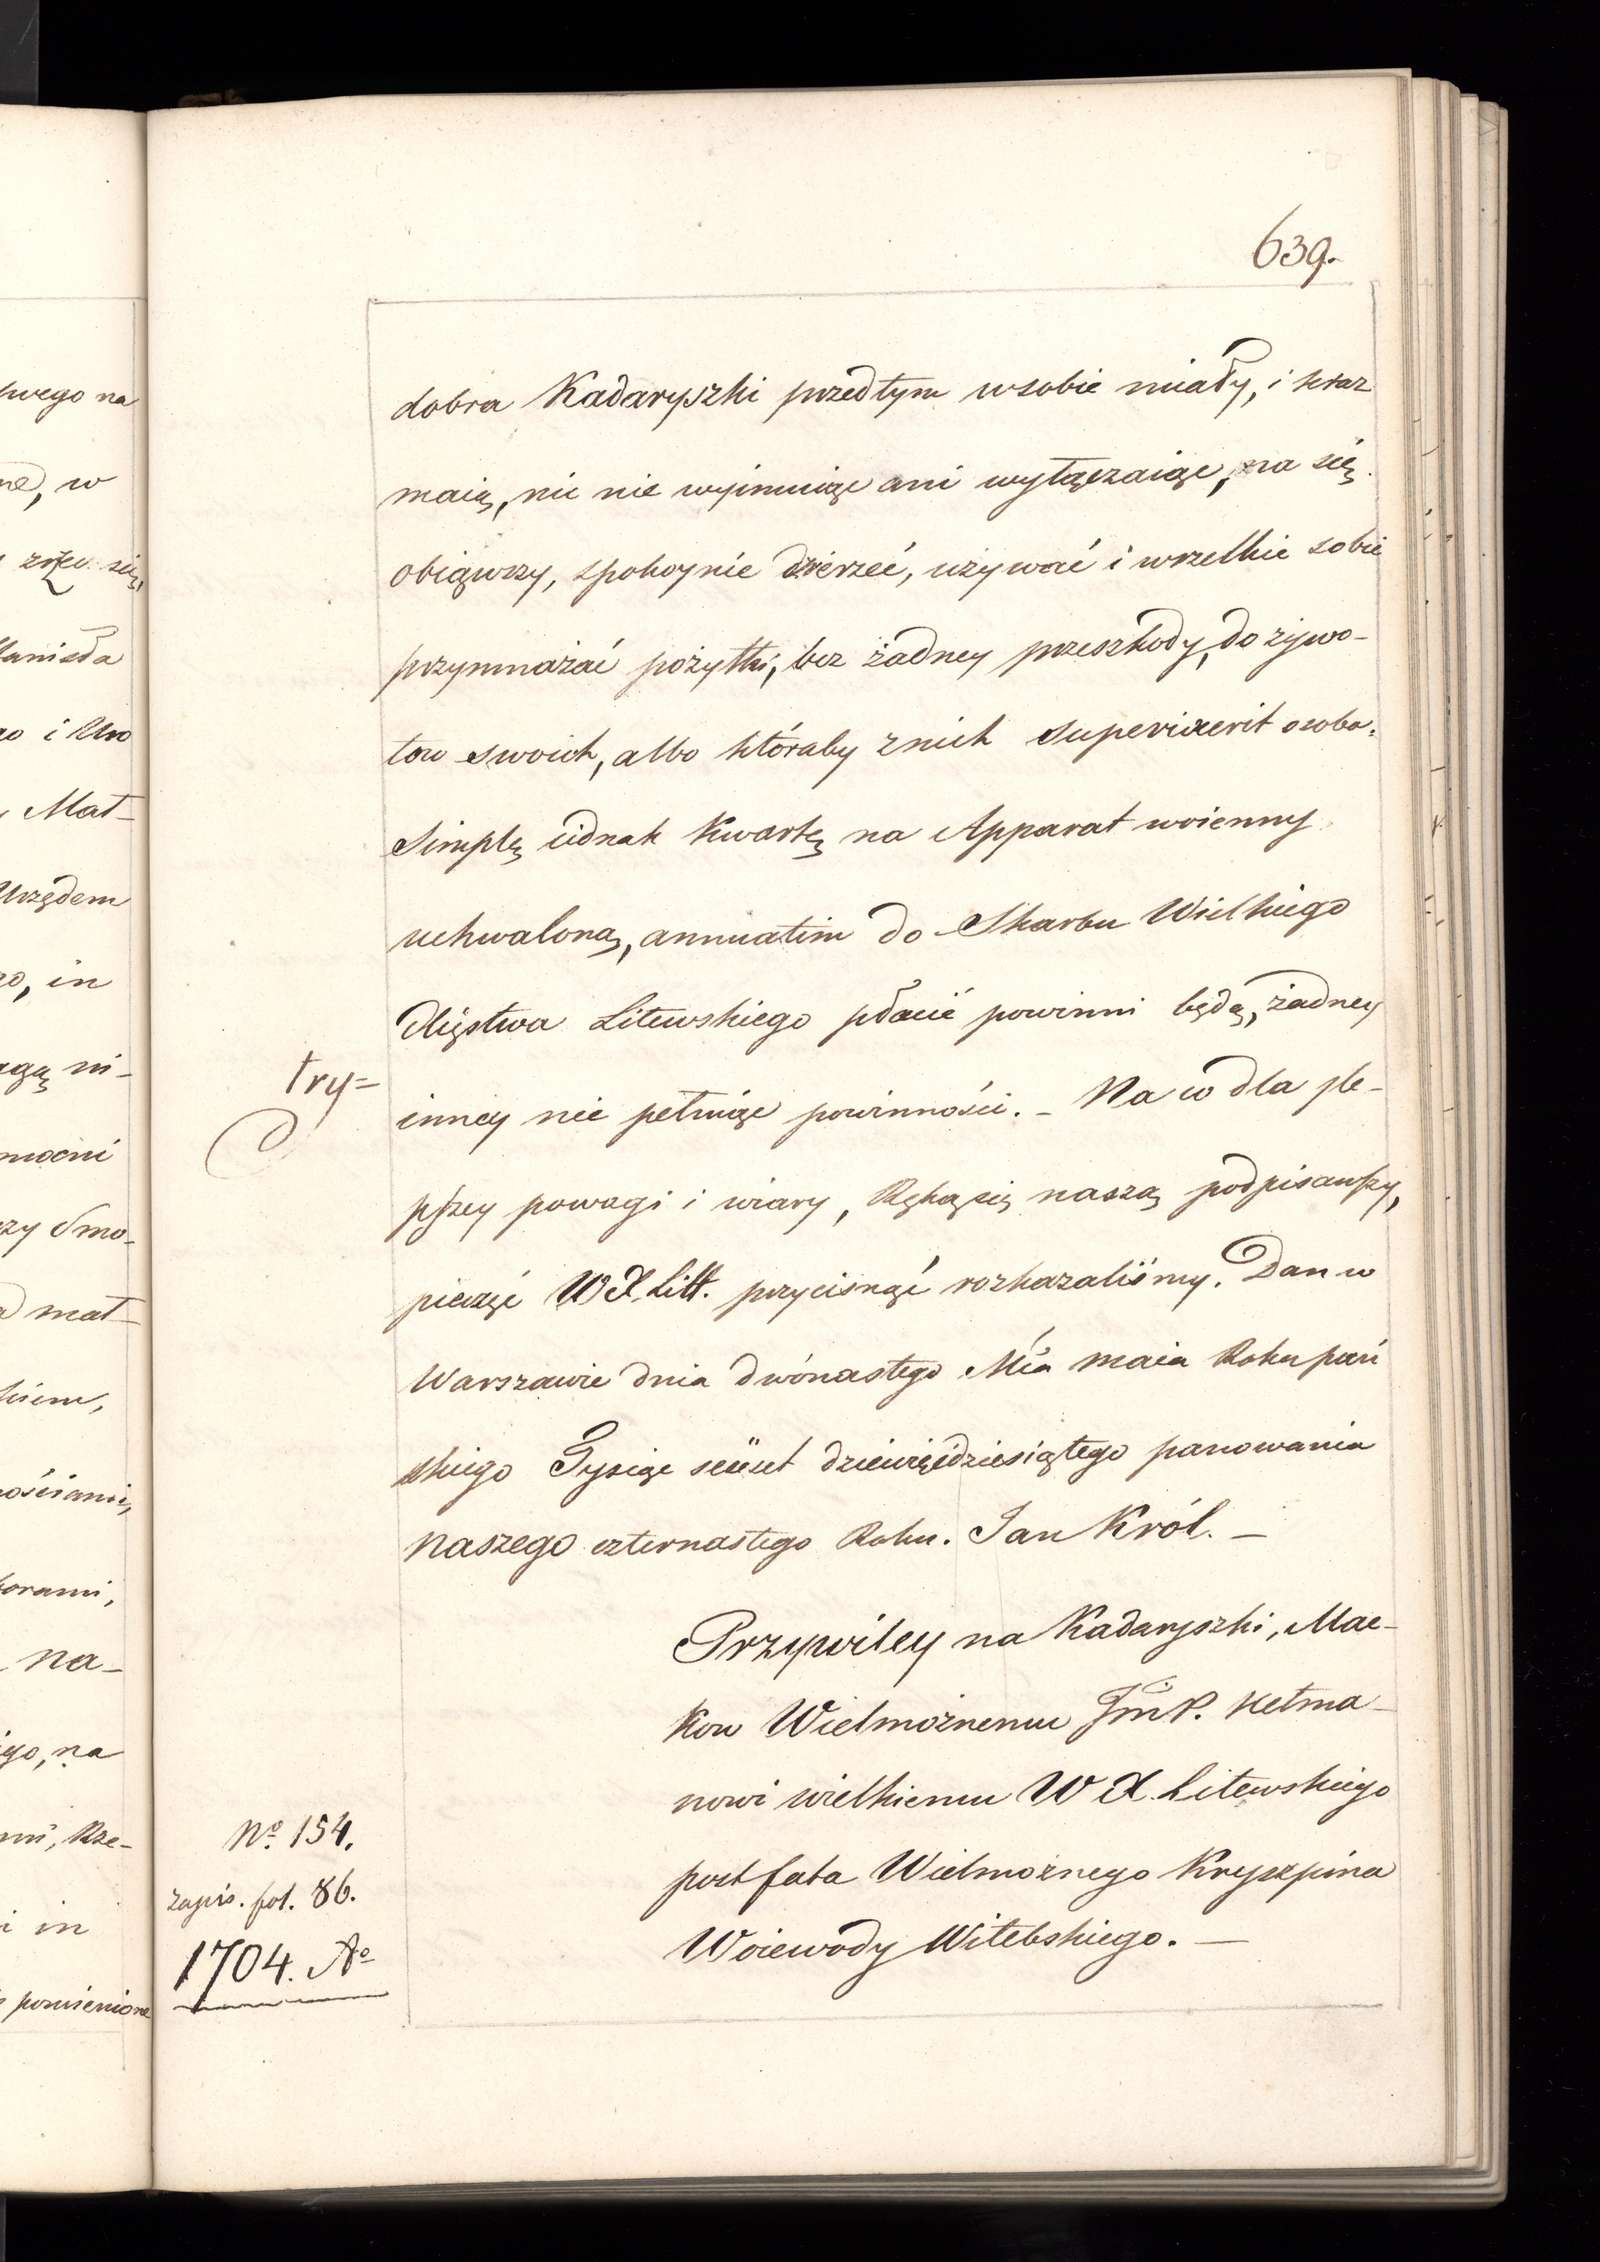 639.
dobra Kadaryszki przedtym w sobie miały, i teraz
maią, nic nie wyimuiąc ani wyłączaiąc, na się
obiąwszy, spokoynie dzierzeć, używać i wszelkie sobie
przymnażać pożytki, bez żadney przeszkody, do żywo-
tow swoich, albo któraby z nich supervixerit osoba.
Simplę iednak Kwartę na Apparat woienny
uchwaloną, annuatim do Skarbu Wielkiego
Xięstwa Litewskiego płacić powinni będą, żadney
inney nie pełniąc powinności. - Na co dla le-
try=
pszey powagi i wiary, Ręką się naszą podpisawszy,
pieczęć W X. Litt. przycisnąć rozkazaliśmy. Dan w
Warszawie dnia dwónastego Mca maia Roku pań
skiego Tysiąc sećset dziewięćdziesiątego panowania
naszego czternastego Roku. Jan Król. —
Przywiley na Kadaryszki, Mac-
kow Wielmożnemu JmP. Hetma-
nowi wielkiemu W X. Litewskiego
post fata Wielmożnego Kryszpina
Woiewody Witebskiego. —
No. 154.
zapis. fol. 86.
1704. Ao